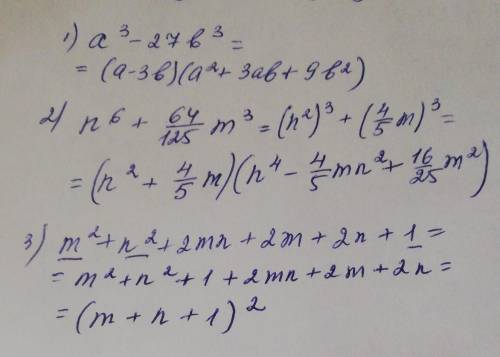 1) a³ - 27b³ =
= (a-3b)(a²+3ab+9b²)
2) n⁶ + 64/125 m³ = (n²)³ + (4/5 m)³ =
= (n² + 4/5 m)(n⁴ - 4/5 mn² + 16/25 m²)
3) m² + n² + 2mn + 2m + 2n + 1 =
= m² + n² + 1 + 2mn + 2m + 2n =
= (m + n + 1)²